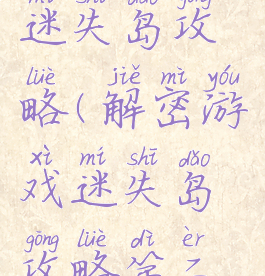 mí shī dǎo gōng
迷失岛攻
lüè jiě mì yóu
略(解密游
xì mí shī dǎo
戏迷失岛
gōng lüè dì èr
攻略第